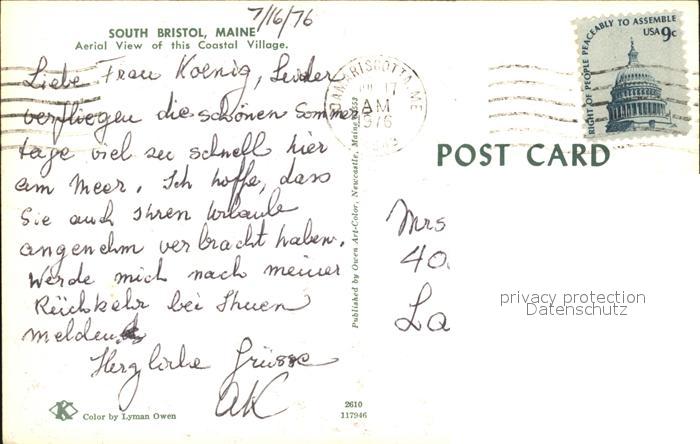 7/16/76
SOUTH BRISTOL, MAINE
Aerial View of this Coastal Village.
Liebe Frau Koenig, Leider
verfliegen die schönen Sommer
tage viel zu schnell hier
am Meer. Ich hoffe, dass
Sie auch Ihren Urlaub
angenehm verbracht haben.
Werde mich nach meiner
Rückkehr bei Ihnen
melden.
Herzliche Grüsse
AK
Color by Lyman Owen
2610
117946
Published by Owen Art-Color, Newcastle, Maine 04553
DAMARISCOTTA, ME
17
AM
1976
RIGHT OF PEOPLE PEACEABLY TO ASSEMBLE
USA 9c
POST CARD
Mrs
40
La
privacy protection
Datenschutz